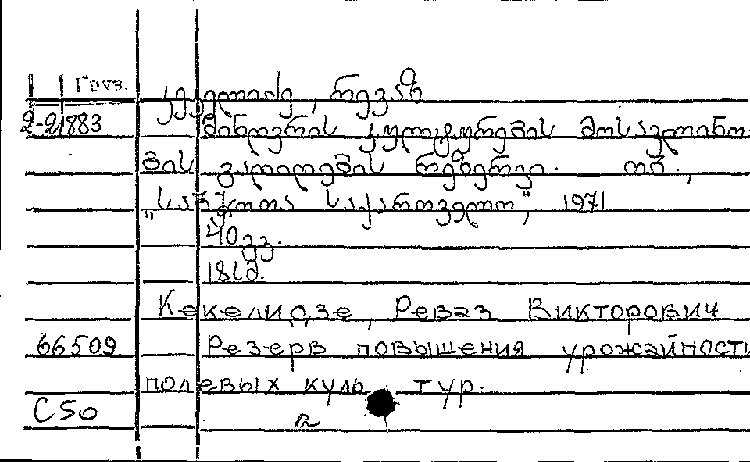 Груз.
კეკელიძე, რევაზ
2-21883
მინდვრის კულტურების მოსავლიანო
ბის გადიდების რეზერვი. თბ.,
„საბჭოთა საქართველო", 1971
40 გვ.
18 l მ.
Кекелидзе, Реваз Викторович
66509
Резерв повышения урожайности
полевых куль тур.
C50